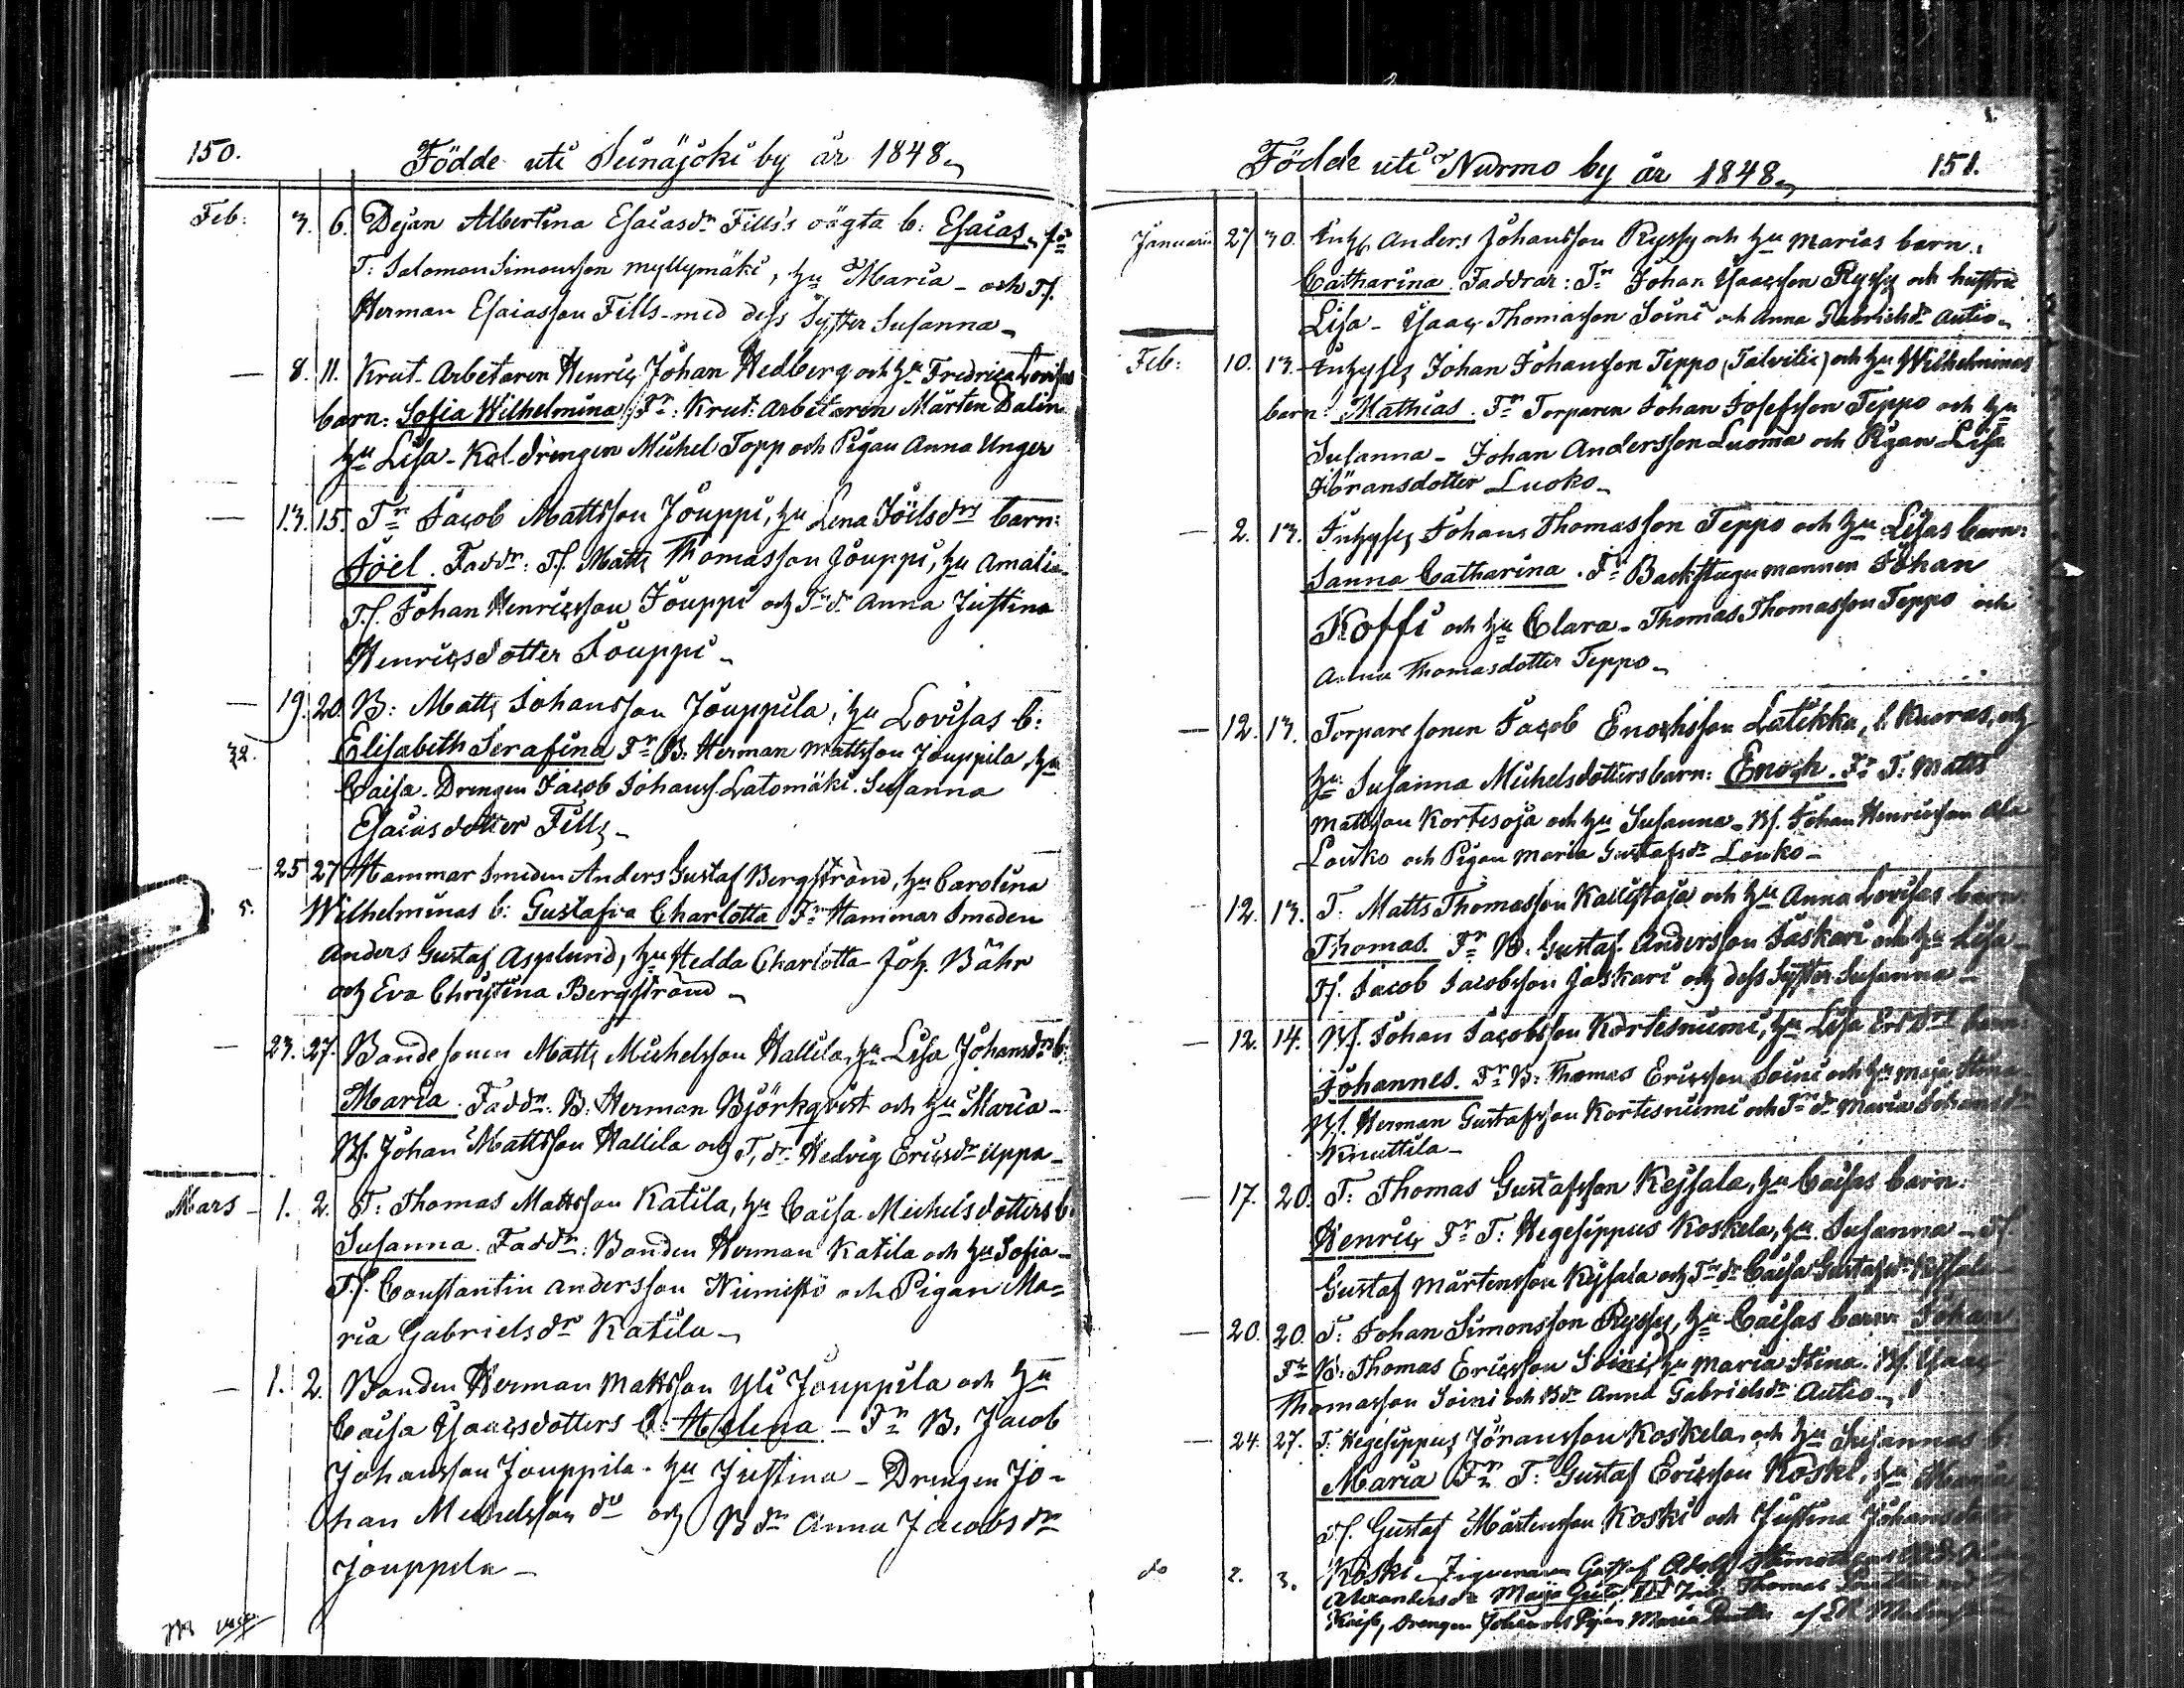 150.
Födde uti Seinäjoki by år 1848
Feb: 3. 6. Pigan Albertina Esaiasdr Fills's oägta b: Esaias, Fr
T: Salomon Simonsson Myllymäki, hu Maria - och Tf.
Herman Esaiasson Fills - med dess Syster Susanna -
— 8. 11. Krut-Arbetaren Henric Johan Hedberg och hu Fredrica Lovisas
barn: Sofia Wilhelmina. Fr: Krut: arbetaren Mårten Dalin
hu Lisa - Kol-drengen Michel Topp och Pigan Anna Unger
— 13. 15. Tr Jacob Mattsson Jouppi, hu Lena Joëlsdrs barn:
Joël. Faddr: Tf. Matts Thomasson Jouppi, hu Amalia -
Tf. Johan Henricsson Jouppi och Trdr Anna Justina
Henricsdotter Jouppi -
— 19. 20. B: Matts Johansson Jouppila, hu Lovisas b:
32. Elisabeth Serafina Fr B: Herman Mattsson Jouppila, hu
Caisa - Drengen Jacob Johanss. Latomäki. Susanna
Esaiasdotter Fills -
— 25 27 Hammar Smeden Anders Gustaf Bergstrand, hu Carolina
5. Wilhelminas b: Gustafva Charlotta Fr Hammar Smeden
Anders Gustaf Asplund, hu Hedda Charlotta - Joh. Bähr
och Eva Christina Bergstrand -
— 23. 27. Bondesonen Matts Michelsson Hallila, hu Lisa Johansdrs b:
Maria. Faddr: B: Herman Björkqvist och hu Maria -
Bf. Johan Mattsson Hallila och T, dr Hedvig Ericsdr Uppa -
Mars - 1. 2. T: Thomas Mattsson Katila, hu Caisa Michelsdotters b.
Susanna. Faddr: Bonden Herman Katila och hu Sofia -
Tf. Constantin Andersson Niemistö och Pigan Ma=
ria Gabrielsdr Katila -
— 1. 2. Bonden Herman Mattsson Yli Jouppila och hu
Caisa Ysaacsdotters b: Helena - Fr B. Jacob
Johansson Jouppila - hu Justina - Drengen Jo-
han Michelsson do och Bdr Anna Jacobsdr
Jouppila -
Födde uti Nurmo by år 1848 151.
Januari 27 30. Inhs Anders Johansson Ryssy och hu Marias barn:
Catharina. Faddrar: Tr Johan Ysaacsson Ryssy och hustru
Lisa - Ysaac Thomasson Soini och Anna Gabrielsdr Autio -
Feb: 10. 13. Inhyses Johan Johansson Teppo (Talvitie) och hu Wilhelminas
barn: Mathias. Fr Torparen Johan Josefsson Teppo och hu
Susanna - Johan Andersson Luoma och Pigan Lisa
Göransdotter Luoko -
— 2. 13. Inhyses Johans Thomasson Teppo och hu Lisas barn:
Sanna Catharina. Fr Backstugumannen Johan
Koffi och hu Clara - Thomas Thomasson Teppo och
Anna Thomasdotter Teppo -
— 12. 13. Torparesonen Jacob Enochsson Latikka, l. Kuoras, och
hu Susanna Michelsdotters barn: Enoch. Fr T: Matts
Mattsson Kortesoja och hu Susanna - Bf. Johan Henricsson Ala
Louko och Pigan Maria Gustafsdr Louko -
12. 13. T: Matts Thomasson Kallistaja och hu Anna Lovisas barn
Thomas. Fr B. Gustaf Andersson Jaskari och hu Lisa -
Tf. Jacob Jacobsson Jaskari och dess Syster Susanna -
— 12. 14. Bf. Johan Jacobsson Kortesniemi, hu Lisa barn:
Johannes. Fr B: Thomas Ericsson Soini och hu Maja Stina
Bf. Herman Gustafsson Kortesniemi och Trdr Maria Johansdr
Knuttila -
— 17. 20. T: Thomas Gustafsson Keisala, hu Caisas barn:
Henric Fr T: Hegesippus Koskela, hu Susanna - Tf.
Gustaf Mårtensson Keisala och Trdr Caisa Gustafsdr Keisala
— 20. 20. T: Johan Simonsson Ryssy, hu Caisas barn: Johan
Fr B: Thomas Ericsson Soini, hu Maria Stina. Bf. Ysaac
Thomasson Soini och Bdr Anna Gabrielsdr Autio -
— 24. 27. T: Hegesippus Göransson Koskela och hu Susannas b:
Maria Fr T: Gustaf Ericsson Koski, hu Maria
Tf. Gustaf Mårtensson Koski och Justina Johansdotter
do 2. 3. Koski - Gustaf Adolf
Alexandersdr Maija Greta. Thomas
Kaisa, Drengen Johan och Pigan Maria